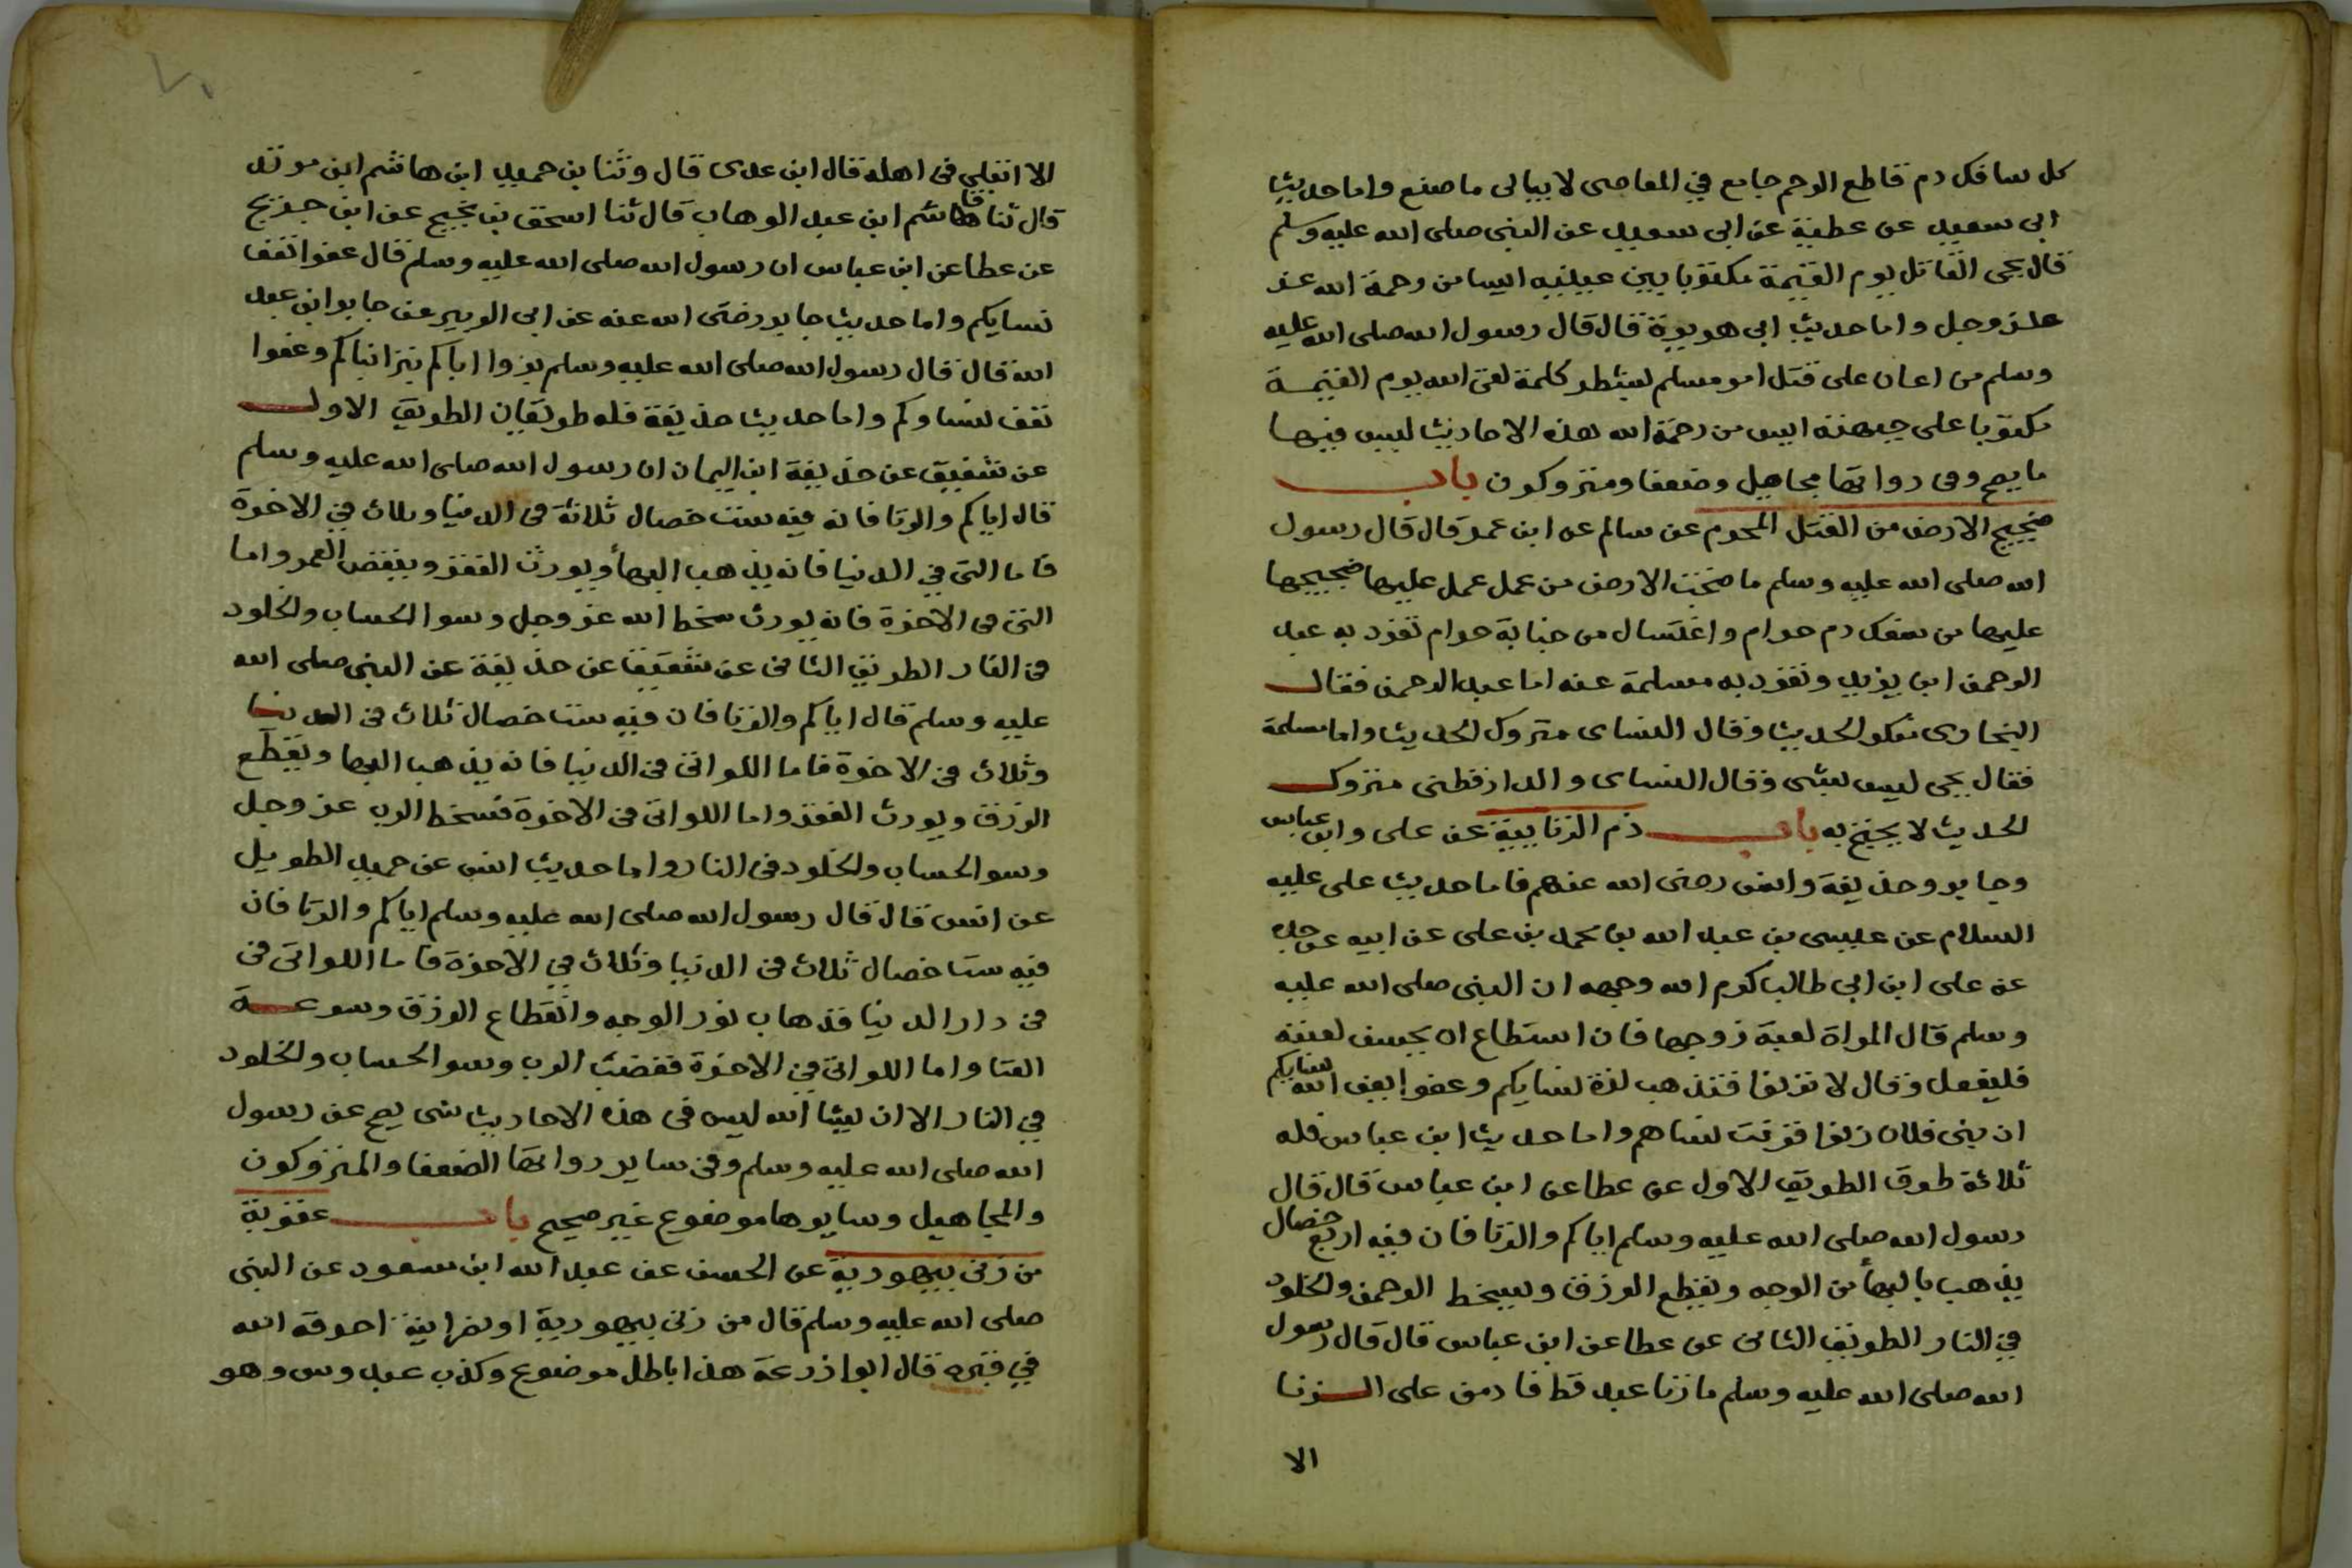 كل سافك دم قاطع الرحم جامع في المعاصى لا يبالى ما صنع واما حديث
ابى سعيد عن عطية عن ابى سعيد عن النبى صلى الله عليه وسلم
قال يجى القاتل يوم القيمة مكتوبا بين عينيه ايسا من رحمة الله عز
عز وجل واما حديث ابى هريرة قال قال رسول الله صلى الله عليه
وسلم من اعان على قتل امر مسلم بشطر كلمة لقى الله يوم القيمة
مكتوبا على جبهته ايس من رحمة الله هذه الاحاديث ليس فيها
ما يصح وفى رواتها مجاهيل وضعفا ومتروكون باب
ضجيج الارض من القتل المحرم عن سالم عن ابن عمر قال قال رسول
الله صلى الله عليه وسلم ما ضجت الارض من عمل عمل عليها ضجيجها
عليها من سفك دم حرام واغتسال من جنابة حرام تفرد به عبد
الرحمن ابن يزيد وتفرد به مسلمة عنه اما عبد الرحمن فقال
البخارى منكر الحديث وقال النساى متروك الحديث واما مسلمة
فقال يحى ليس بشى وقال النساى والدارقطنى متروك
الحديث لا يحتج به باب ذم الزنا بينة عن على وابن عباس
وجابر وحذيفة وانس رضى الله عنهم فاما حديث على عليه
السلام عن عيسى بن عبد الله بن محمد بن على عن ابيه عن جده
عن على ابن ابى طالب كرم الله وجهه ان النبى صلى الله عليه
وسلم قال المراة لعبة زوجها فان استطاع ان يحسن لعبته
فليفعل وقال لا تزنوا فتذهب لذة نسايكم وعفوا يعف الله نسايكم
ان بنى فلان زنوا فزنت نساهم واما حديث ابن عباس فله
ثلاثة طرق الطريق الاول عن عطا عن ابن عباس قال قال
رسول الله صلى الله عليه وسلم اياكم والزنا فان فيه اربع خصال
يذهب بالبهأ من الوجه ويقطع الرزق ويسخط الرحمن والخلود
في النار الطريق الثانى عن عطا عن ابن عباس قال قال رسول
الله صلى الله عليه وسلم ما زنا عبد قط فادمن على الزنا
الا
الا ابتلى فى اهله قال ابن عدى قال وثنا بن حميد ابن هاشم ابن مرثد
قال ثنا هاشم ابن عبد الوهاب قال ثنا اسحق بن نجيح عن ابن جريج
عن عطا عن ابن عباس ان رسول الله صلى الله عليه وسلم قال عفوا تعف
نسايكم واما حديث جابر رضى الله عنه عن ابى الزبير عن جابر ابن عبد
الله قال قال رسول الله صلى الله عليه وسلم بروا اباكم تبر ابناكم وعفوا
تعف نساوكم واما حديث حذيفة فله طريقان الطريق الاول
عن شقيق عن حذيفة ابن اليمان ان رسول الله صلى الله عليه وسلم
قال اياكم والزنا فانه فيه ست خصال ثلاثة فى الدنيا وثلاث في الاخرة
فاما التى في الدنيا فانه يذهب البهأ ويورث الفقر وينقض العمر واما
التى فى الاخرة فانه يورث سخط الله عز وجل وسوا الحساب والخلود
فى النار الطريق الثانى عن شقيق عن حذيفة عن النبى صلى الله
عليه وسلم قال اياكم والزنا فان فيه ست خصال ثلاث فى الدنيا
وثلاث فى الاخرة فاما اللواتى فى الدنيا فانه يذهب البها ويقطع
الرزق ويورث الفقر واما اللواتى فى الاخرة فسخط الرب عز وجل
وسو الحساب والخلود فى النار واما حديث انس عن حميد الطويل
عن انس قال قال رسول الله صلى الله عليه وسلم اياكم والزنا فان
فيه ست خصال ثلاث فى الدنيا وثلاث في الاخرة فاما اللواتى فى
فى دار الدنيا فذهاب نور الوجه وانقطاع الرزق وسرعة
الفنا واما اللواتى في الاخرة فغضب الرب وسو الحساب والخلود
في النار الا ان يشا الله ليس فى هذه الاحاديث شى يصح عن رسول
الله صلى الله عليه وسلم وفى ساير رواتها الضعفا والمتروكون
والمجاهيل وسايرها موضوع غير صحيح باب عقوبة
من زنى بيهودية عن الحسن عن عبد الله ابن مسعود عن النبى
صلى الله عليه وسلم قال من زنى بيهودية او نصرانية احرقه الله
في قبره قال ابوا زرعة هذا باطل موضوع وكذب عبدوس وهو